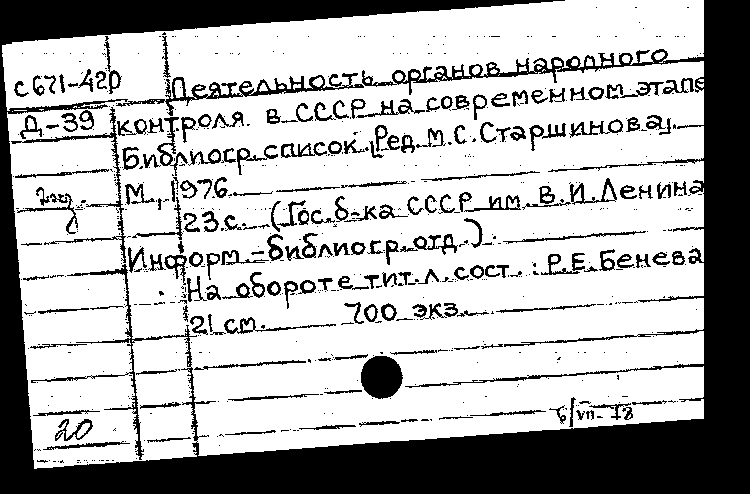 с671-420 Деятельность органов народного
Д-39 контроля в СССР на современном этапе
Библиогр. список. [Ред. М.С. Старшинова].
М., 1976.
23 с. (Гос. б-ка СССР им. В.И. Ленина
Информ.-библиогр. отд.).
На обороте тит. л. сост.: Р.Е. Бенева
21 см. 700 экз.
20
6/VII-78